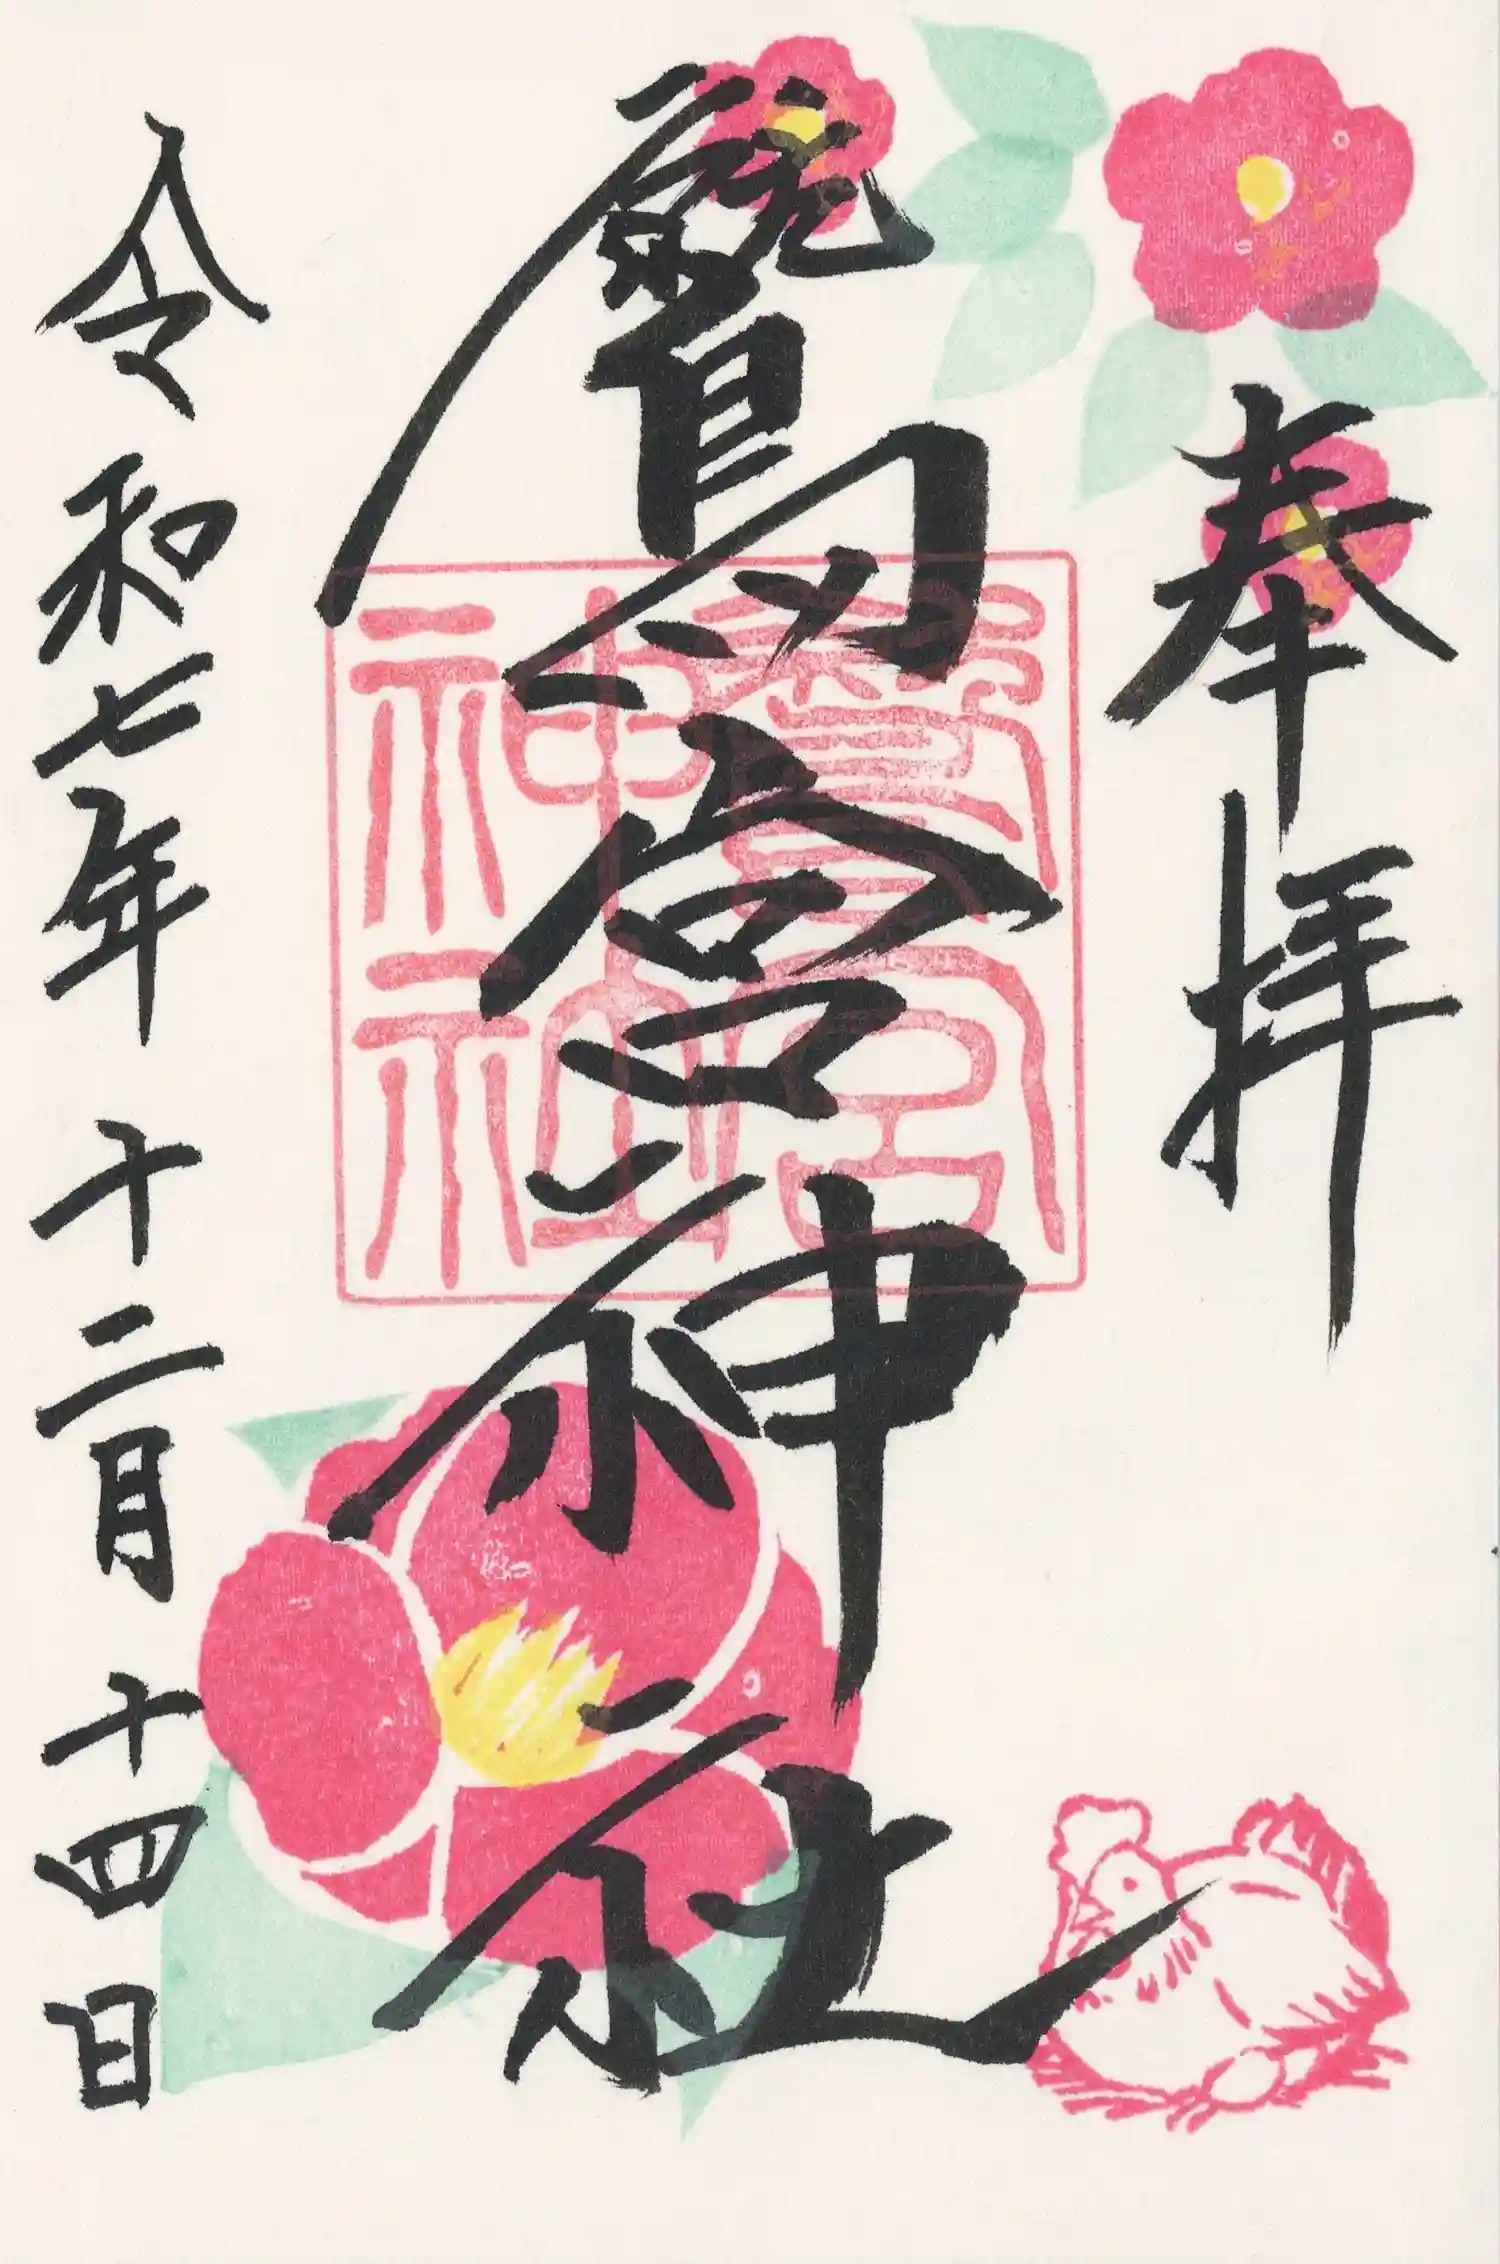 奉拝
鷲宮神社
令和七年 十二月 十四日
鷲宮
神社